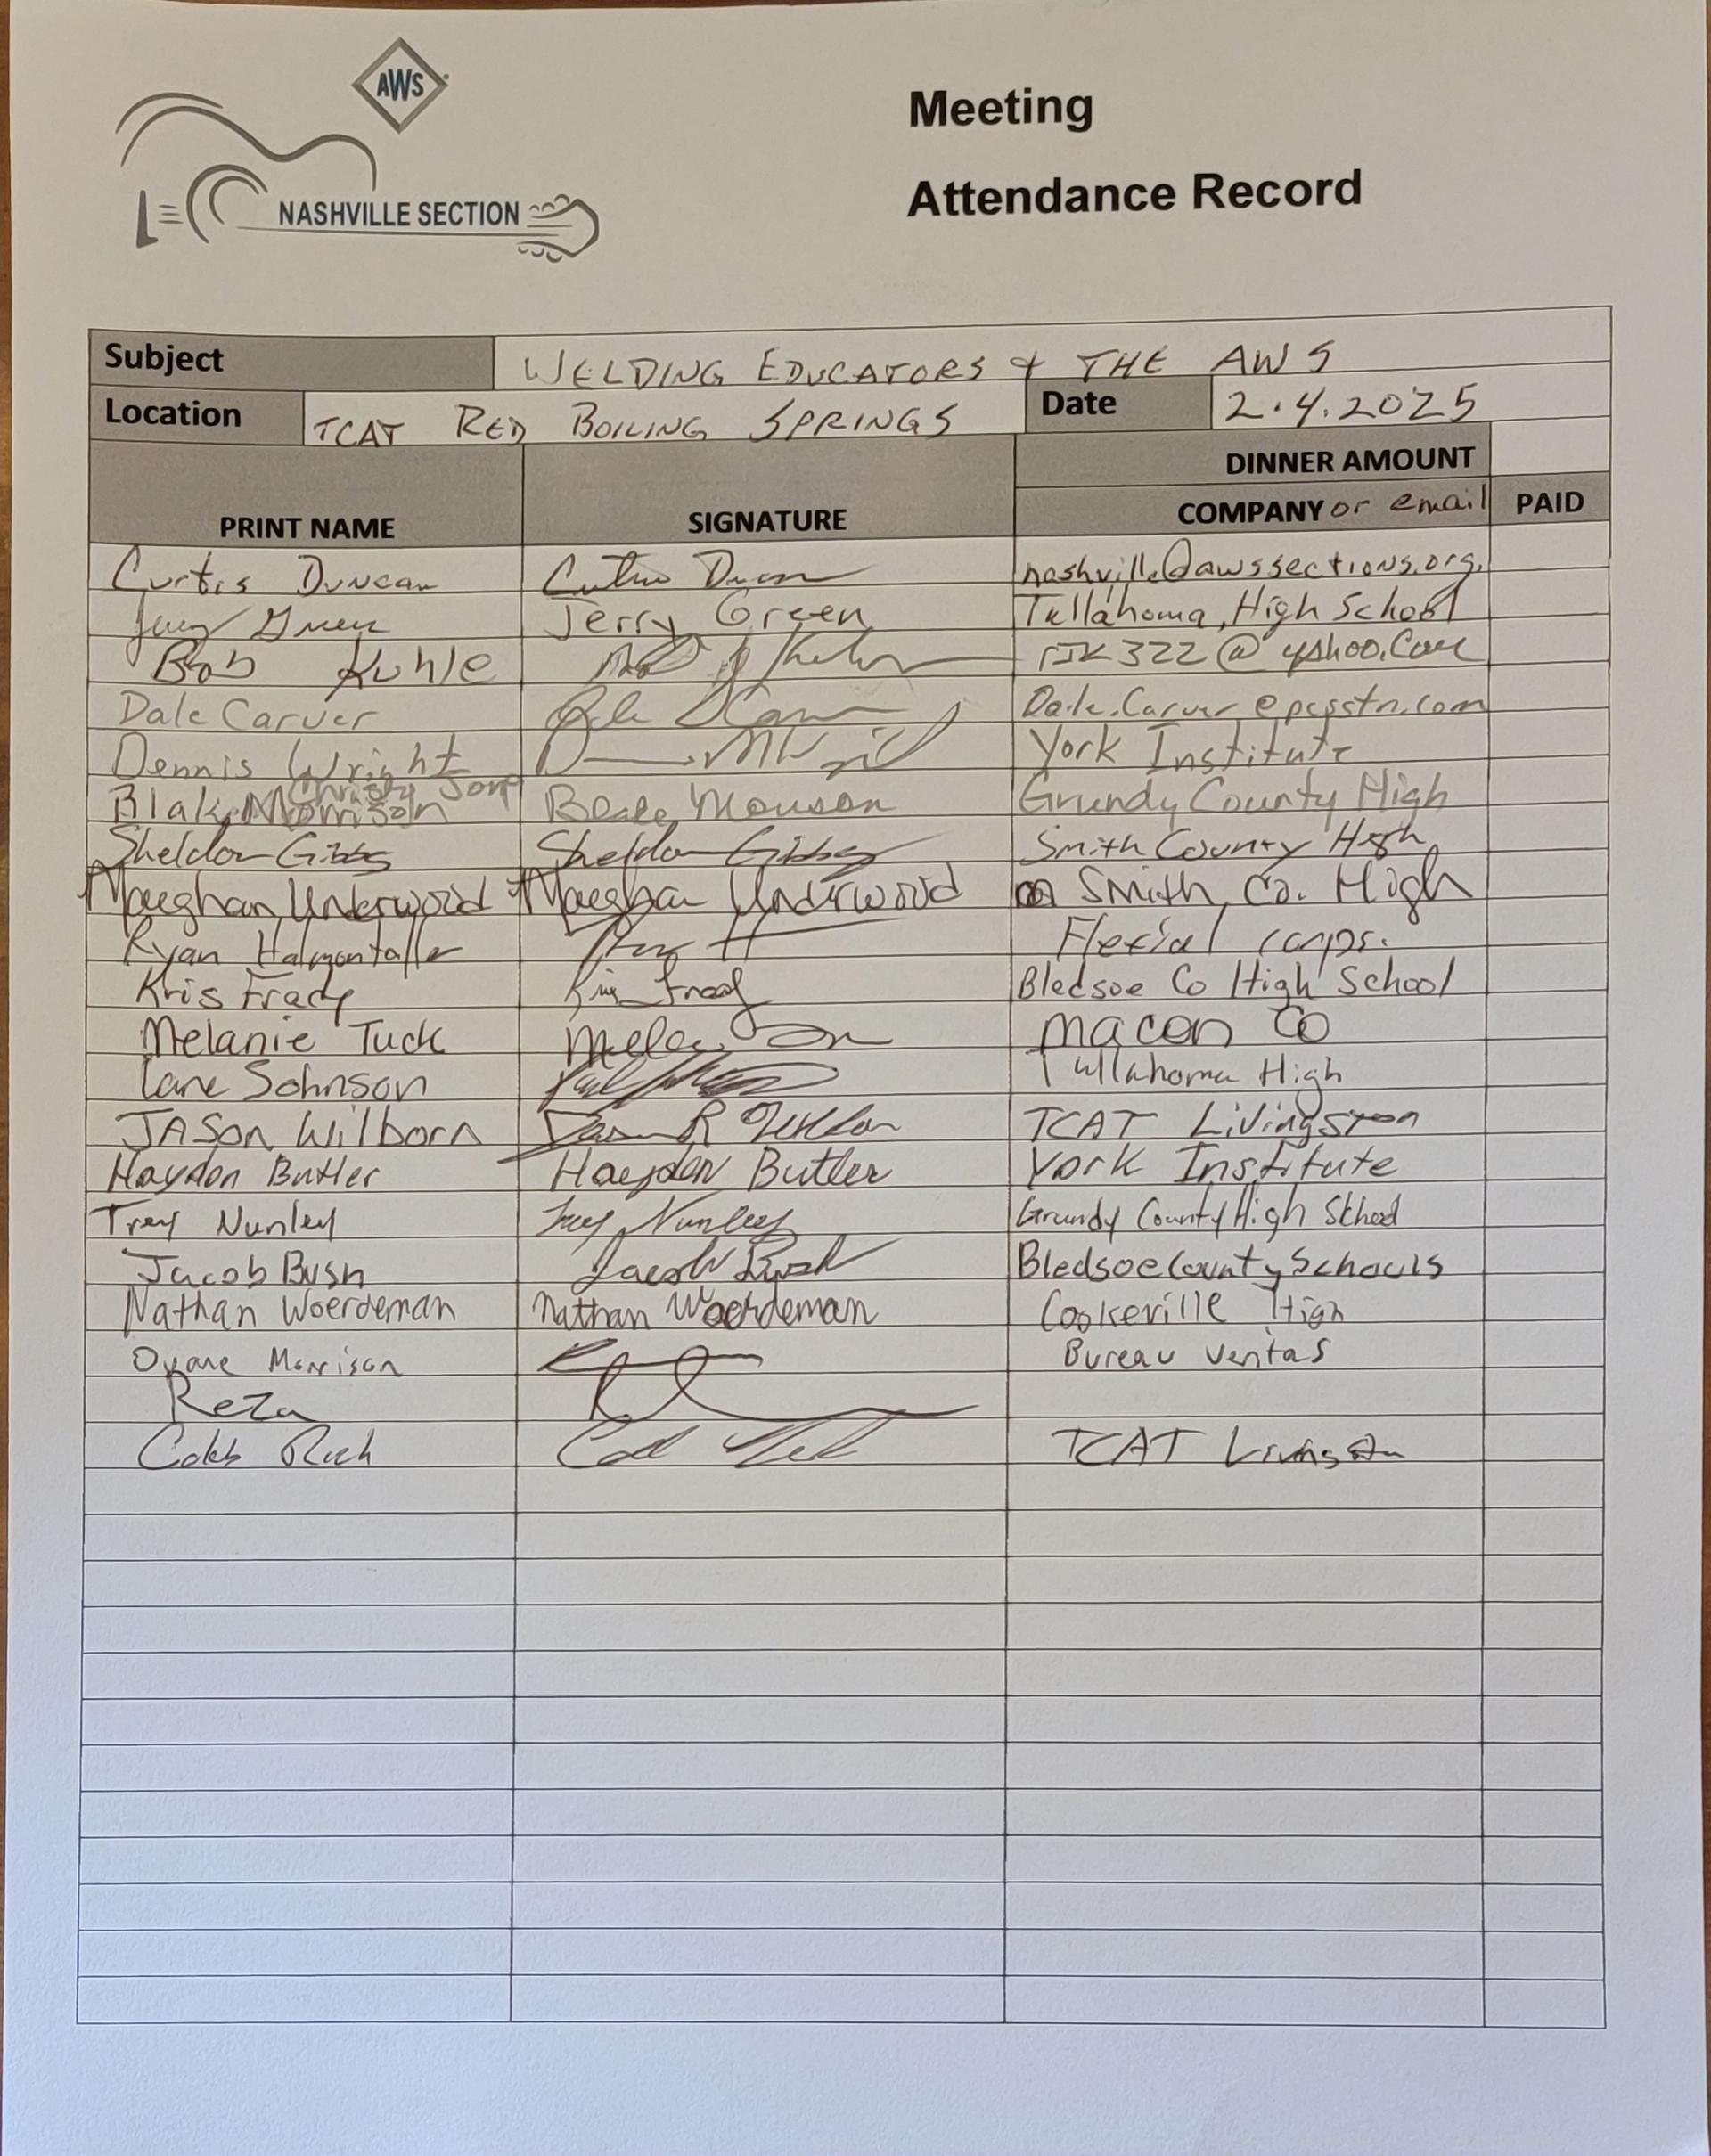 AWS
NASHVILLE SECTION
Meeting
Attendance Record
Subject WELDING EDUCATORS & THE AWS
Location TCAT RED BOILING SPRINGS Date 2.4.2025
DINNER AMOUNT
PRINT NAME SIGNATURE COMPANY or email PAID
Curtis Duncan nashville@awssections.org
Jerry Green Jerry Green Tullahoma High School
Bob Kuhle rjk322@yahoo.com
Dale Carver Dale.Carver@pcsstn.com
Dennis Wright York Institute
Christy Jones
Blake Morrison Blake Morrison Grundy County High
Sheldon Gibbs Sheldon Gibbs Smith County High
Maeghan Underwood Maeghan Underwood Smith Co. High
Ryan
Kris Frady Kris Frady Bledsoe Co High School
Melanie Tuck Macon Co
Lane Johnson Tullahoma High
JASON Wilborn TCAT Livingston
Hayden Butler Hayden Butler York Institute
Trey Nunley Trey Nunley Grundy County High School
Jacob Bush Jacob Bush Bledsoe County Schools
Nathan Woerdeman Nathan Woerdeman Cookeville High
Morrison Bureau Veritas
Reza
Caleb Rich TCAT Livingston